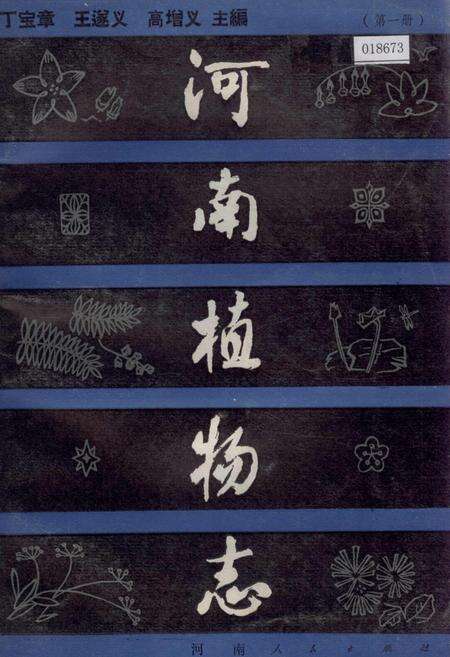 丁宝章 王遂义 高增义 主编
（第一册）
018673
河
南
植
物
志
河南人民出版社